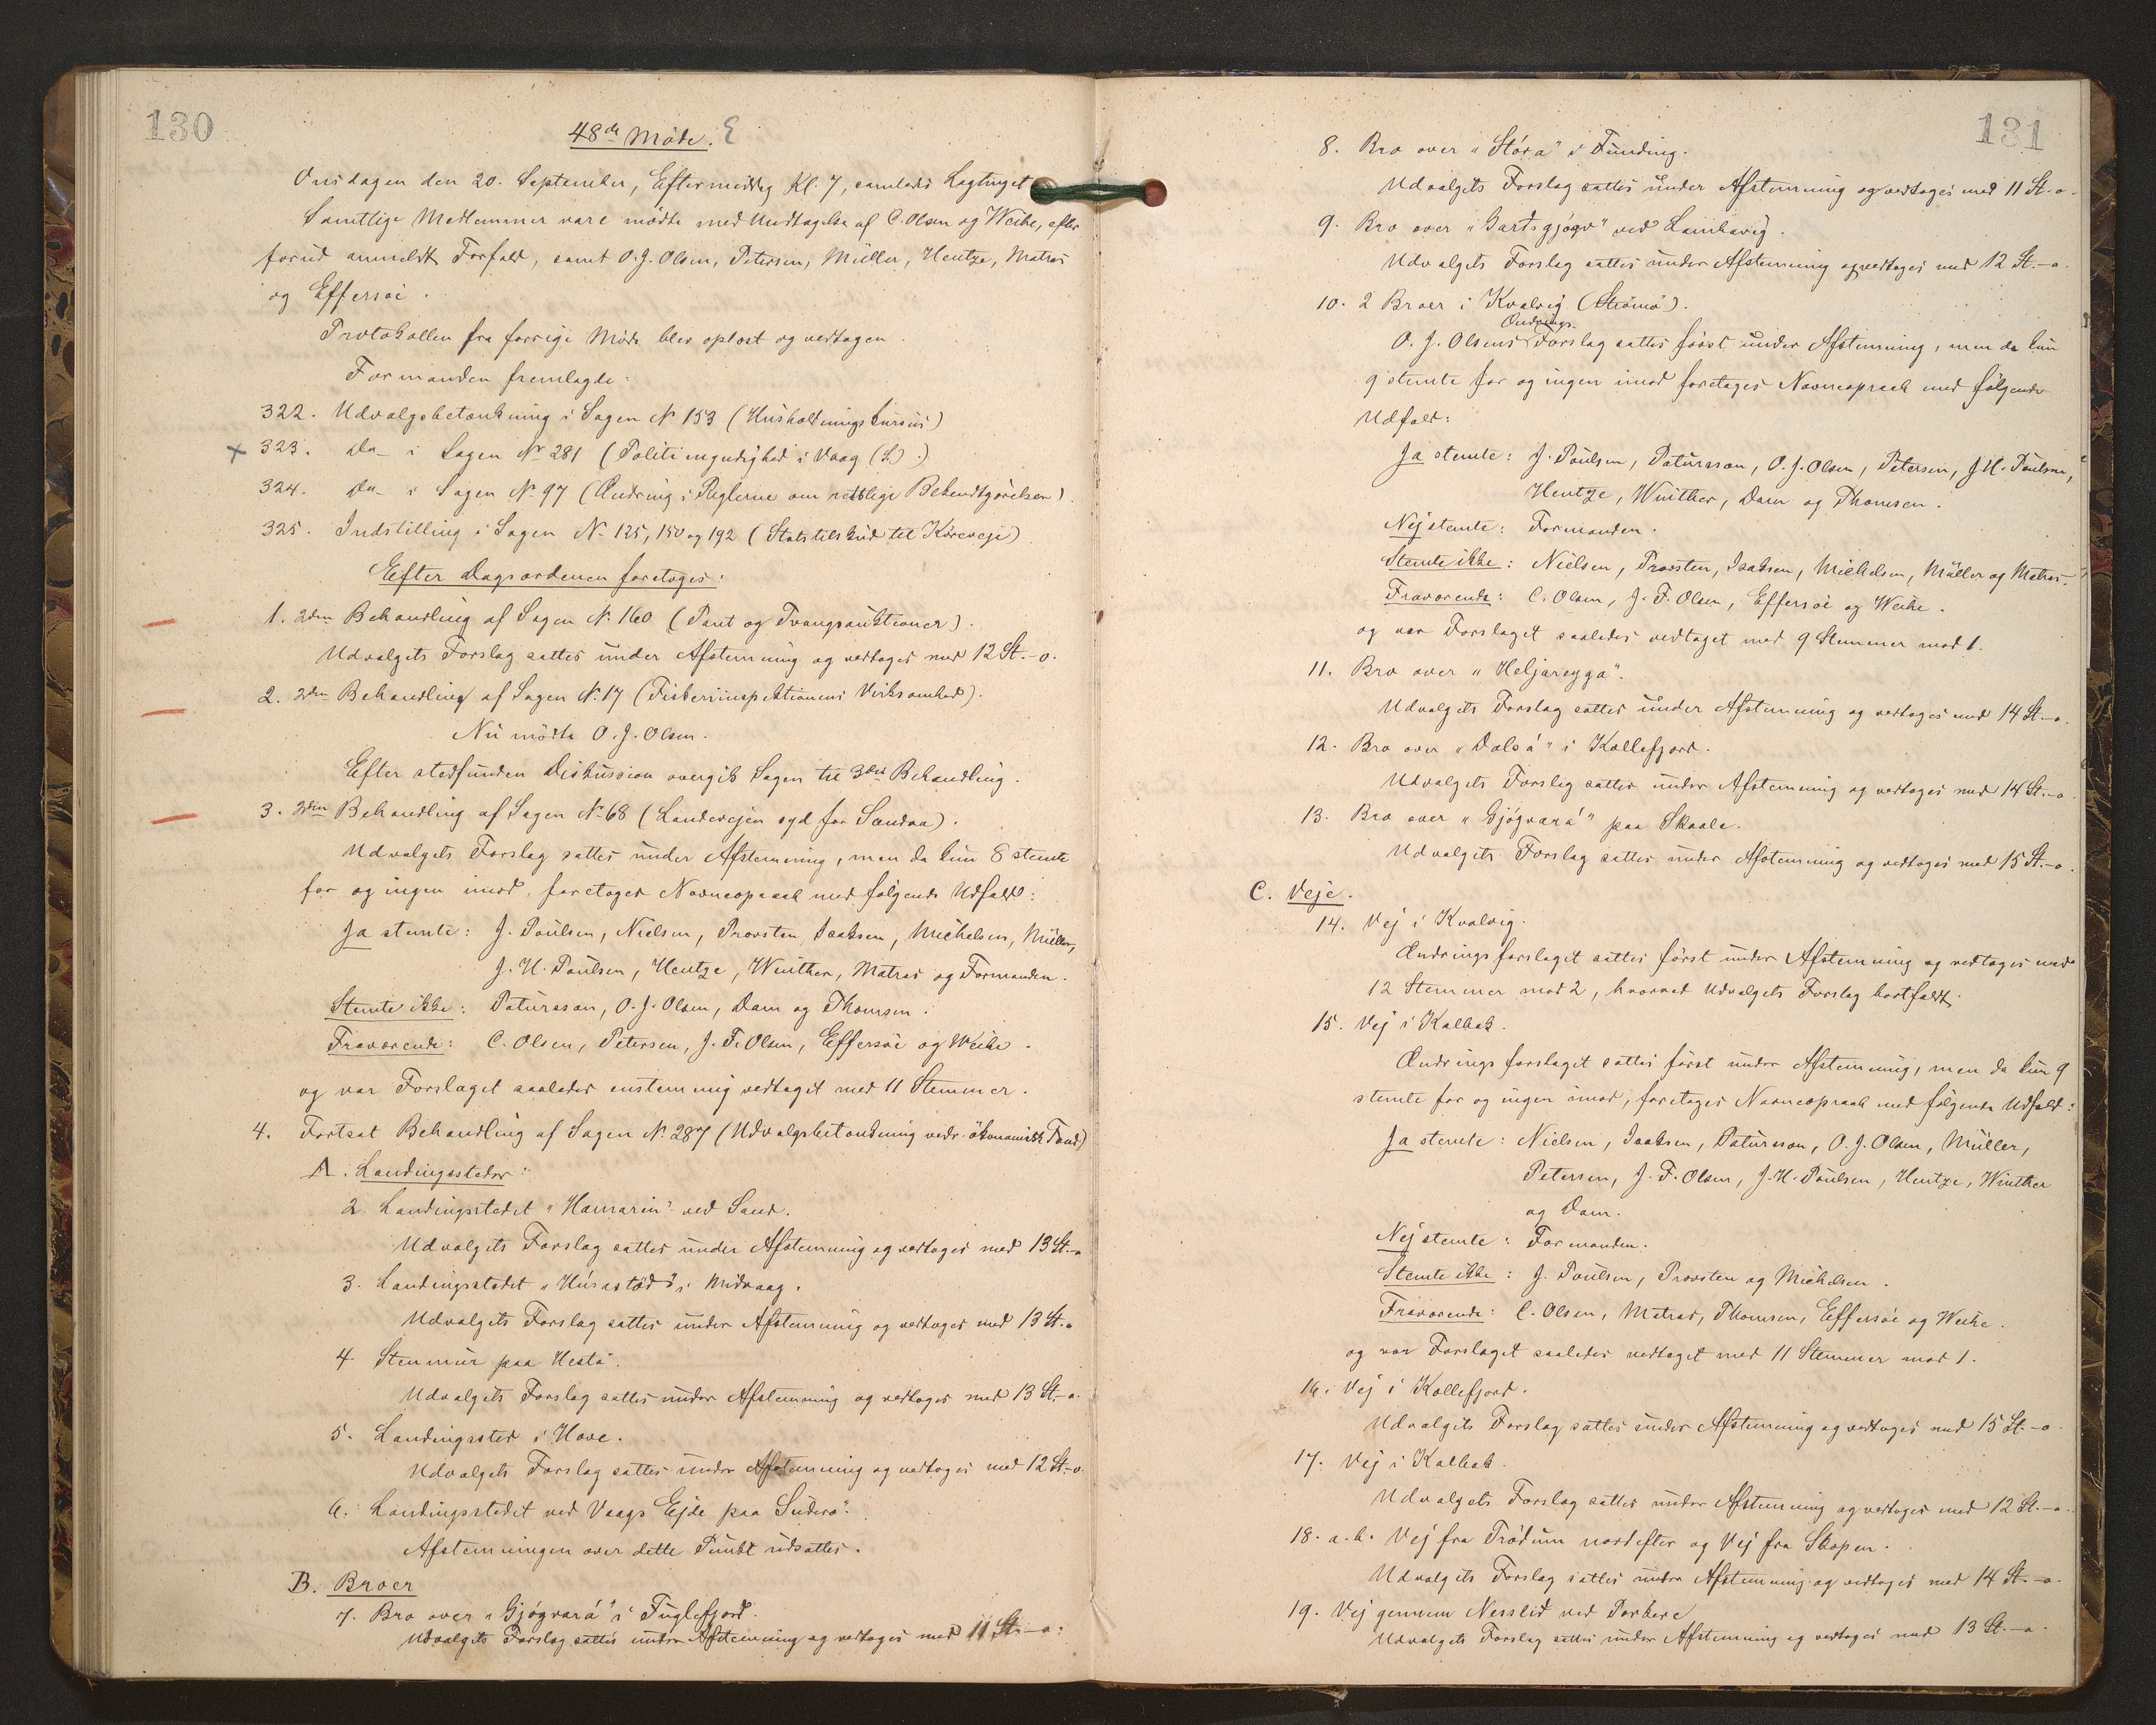 130
48de Møde. E
Onsdagen den 20. September, Eftermiddag Kl. 7, samledes Lagtinget
Samtlige Medlemmer vare mødte med Undtagelse af C. Olsen og Weihe, efter
forud anmeldt Forfald, samt O. J. Olsen, Petersen, Müller, Hentze, Matras
og Effersøe.
Protokollen fra forrige Møde blev oplæst og vedtagen.
Formanden fremlagde:
322. Udvalgsbetænkning i Sagen № 153 (Husholdningskursus)
× 323. Do- i Sagen № 281 (Politimyndighed i Vaag (S.).)
324. Do- i Sagen № 97 (Ændring i Reglerne om retslige Bekendtgørelser).
325. Indstilling i Sagen № 125, 150 og 192 (Statstilskud til Køreveje)
Efter Dagsordenen foretoges:
1. 2den Behandling af Sagen № 160 (Pant og Tvangsauktioner).
Udvalgets Forslag sattes under Afstemning og vedtoges med 12 St.-o.
2. 2den Behandling af Sagen № 17 (Fiskeriinspektionens Virksomhed).
Nu mødte O. J. Olsen.
Efter stedfunden Diskussion overgik Sagen til 3die Behandling.
3. 2den Behandling af Sagen № 68 (Landevejen syd for Sandaa).
Udvalgets Forslag sattes under Afstemning, men da kun 8 stemte
for og ingen imod, foretoges Navneopraab med følgende Udfald:
Ja stemte: J. Poulsen, Nielsen, Provsten, Isaksen, Michelsen, Müller,
J. H. Poulsen, Hentze, Winther, Matras og Formanden.
Stemte ikke: Patursson, O. J. Olsen, Dam og Thomsen.
Fraværende: C. Olsen, Petersen, J. F. Olsen, Effersøe og Weihe.
og var Forslaget saaledes enstemmig vedtaget med 11 Stemmer.
4. Fortsat Behandling af Sagen № 287 (Udvalgsbetænkning vedr. økonomisk Fond)
A. Landingssteder:
2. Landingsstedet "Hamarin" ved Sand.
Udvalgets Forslag sattes under Afstemning og vedtoges med 13 St.-o
3. Landingsstedet "Húsastød" i Midvaag.
Udvalgets Forslag sattes under Afstemning og vedtoges med 13 St.-o
4. Stenmur paa Hestø.
Udvalgets Forslag sattes under Afstemning og vedtoges med 13 St.-o.
5. Landingssted i Hove.
Udvalgets Forslag sattes under Afstemning og vedtoges med 12 St.-o.
6. Landingsstedet ved Vaags Ejde paa Suderø.
Afstemningen over dette Punkt udsattes.
B. Broer
7. Bro over "Gjógvará" i Fuglefjord.
Udvalgets Forslag sattes under Afstemning og vedtoges med 11 St.-o.
131
8. Bro over "Stóra" i Funding.
Udvalgets Forslag sattes under Afstemning og vedtoges med 11 St.-o.
9. Bro over "Gartsgjógv" ved Lambavig.
Udvalgets Forslag sattes under Afstemning og vedtoges med 12 St.-o.
10. 2 Broer i Kvalvig (Strømø).
Ændrings-
O. J. Olsens Forslag sattes først under Afstemning, men da kun
9 stemte for og ingen imod foretoges Navneopraab med følgende
Udfald:
Ja stemte: J. Poulsen, Patursson, O. J. Olsen, Petersen, J. H. Poulsen,
Hentze, Winther, Dam og Thomsen.
Nej stemte: Formanden.
Stemte ikke: Nielsen, Provsten, Isaksen, Michelsen, Müller og Matras.
Fraværende: C. Olsen, J. F. Olsen, Effersøe og Weihe.
og var Forslaget saaledes vedtaget med 9 Stemmer mod 1.
11. Bro over "Heljareygá".
Udvalgets Forslag sattes under Afstemning og vedtoges med 14 St.-o.
12. Bro over "Dalsá" i Kollefjord.
Udvalgets Forslag sattes under Afstemning og vedtoges med 14 St.-o.
13. Bro over "Gjógvará" paa Skaale.
Udvalgets Forslag sattes under Afstemning og vedtoges med 15 St.-o.
C. Veje.
14. Vej i Kvalvig.
Ændringsforslaget sattes først under Afstemning og vedtoges med
12 Stemmer mod 2, hvorved Udvalgets Forslag bortfaldt.
15. Vej i Kalbak.
Ændringsforslaget sattes først under Afstemning, men da kun 9
stemte for og ingen imod, foretoges Navneopraab med følgende Udfald:
Ja stemte: Nielsen, Isaksen, Patursson, O. J. Olsen, Müller,
Petersen, J. F. Olsen, J. H. Poulsen, Hentze, Winther
og Dam.
Nej stemte: Formanden.
Stemte ikke: J. Poulsen, Provsten og Michelsen.
Fraværende: C. Olsen, Matras, Thomsen, Effersøe og Weihe.
og var Forslaget saaledes vedtaget med 11 Stemmer mod 1.
16. Vej i Kollefjord.
Udvalgets Forslag sattes under Afstemning og vedtoges med 15 St.-o
17. Vej i Kalbak.
Udvalgets Forslag sattes under Afstemning og vedtoges med 12 St.-o.
18. a.b. Vej fra Trødum nordefter og Vej fra Skopen.
Udvalgets Forslag sattes under Afstemning og vedtoges med 14 St.-o.
19. Vej gennem Nesslid ved Porkere
Udvalgets Forslag sattes under Afstemning og vedtoges med 13 St.-o.